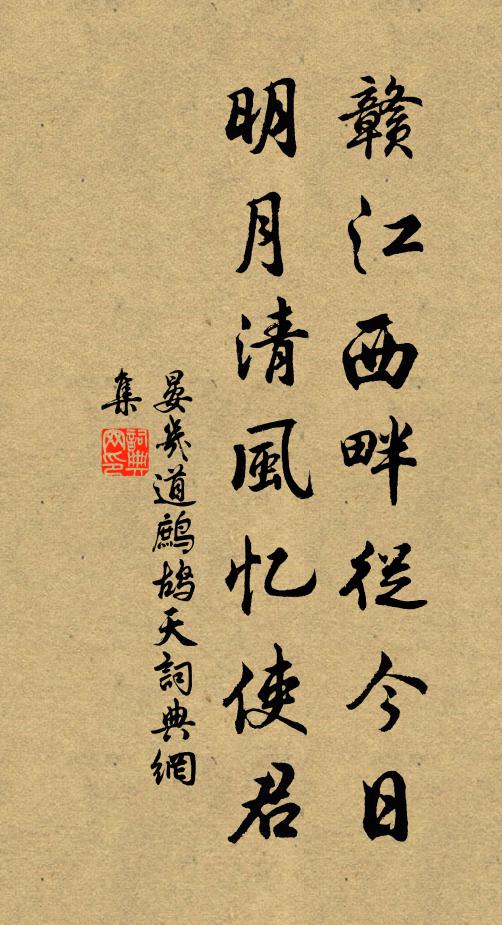 赣江西畔從今日
明月清風忆使君
晏幾道鷓鴣天詞典網
集
詞典網印